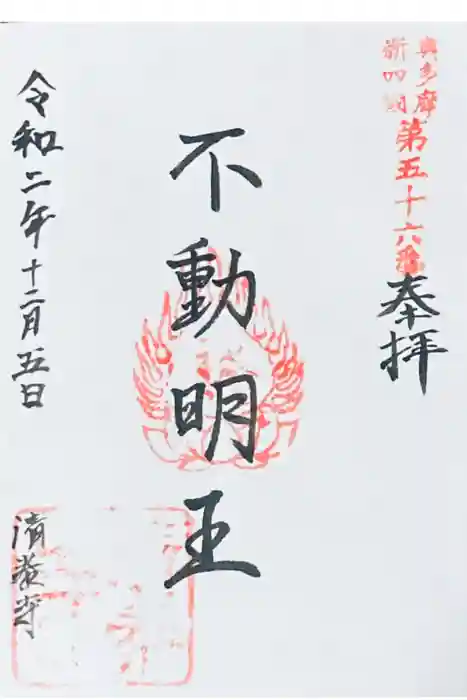 奥多摩
新四国
第五十六番
奉拝
不動明王
令和二年十二月五日